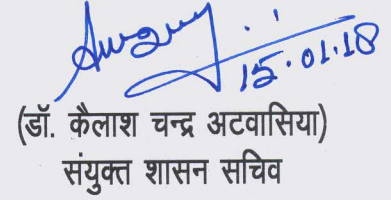 15.01.18
(डॉ. कैलाश चन्द्र अटवासिया)
संयुक्त शासन सचिव